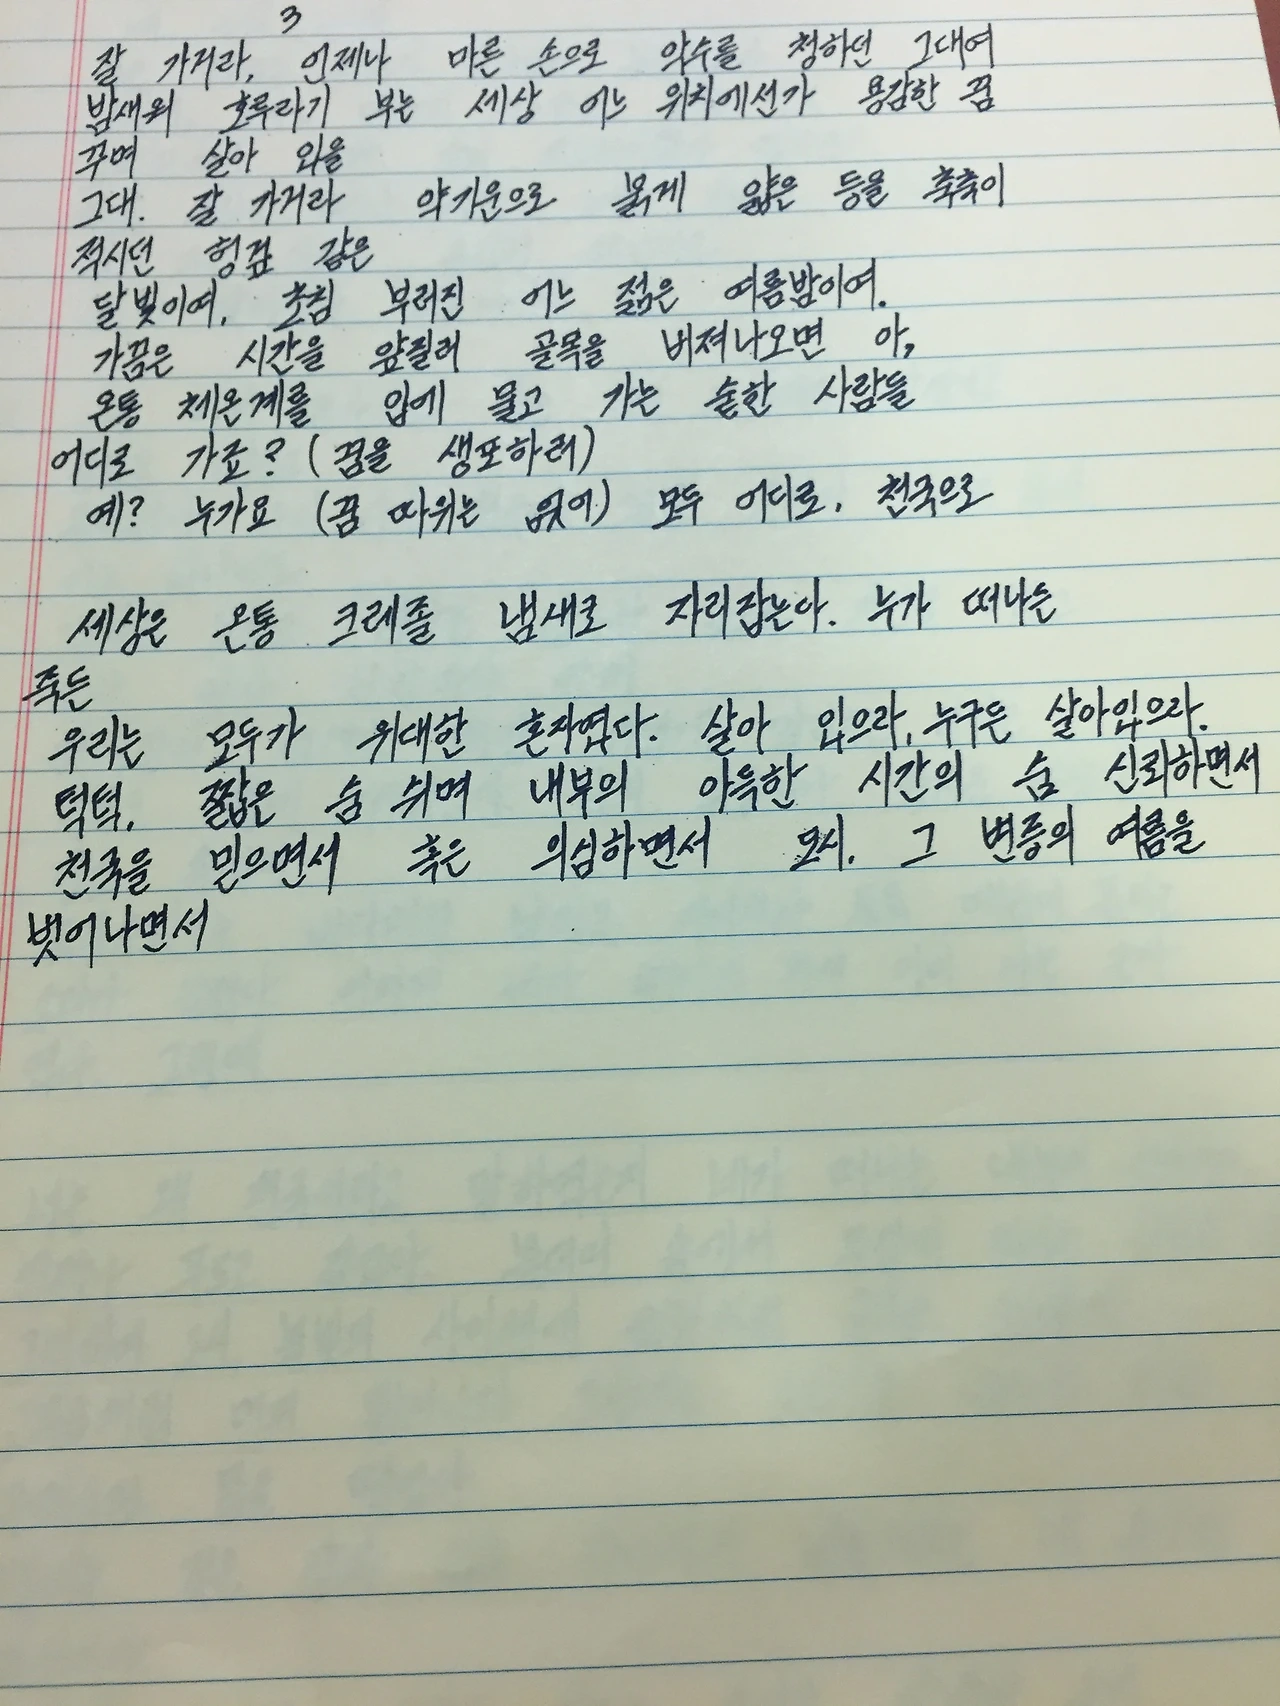 3
잘 가거라, 언제나 마른 손으로 악수를 청하던 그대여
밤새워 호루라기 부는 세상 어느 위치에선가 용감한 꿈
꾸며 살아 있을
그대. 잘 가거라 약기운으로 붉게 얇은 등을 축축이
적시던 헝겊 같은
달빛이여. 초침 부러진 어느 젊은 여름밤이여.
가끔은 시간을 앞질러 골목을 버져나오면 아,
온통 체온계를 입에 물고 가는 숱한 사람들
어디로 가죠? (꿈을 생포하러)
예? 누가요 (꿈 따위는 없어) 모두 어디로, 천국으로
세상은 온통 크레졸 냄새로 자리잡는다. 누가 떠나든
죽든
우리는 모두가 위대한 혼자였다. 살아 있으라, 누구든 살아있으라.
턱턱, 짧은 숨 쉬며 내부의 아득한 시간의 숨 신뢰하면서
천국을 믿으면서 혹은 의심하면서 모시. 그 변증의 여름을
벗어나면서